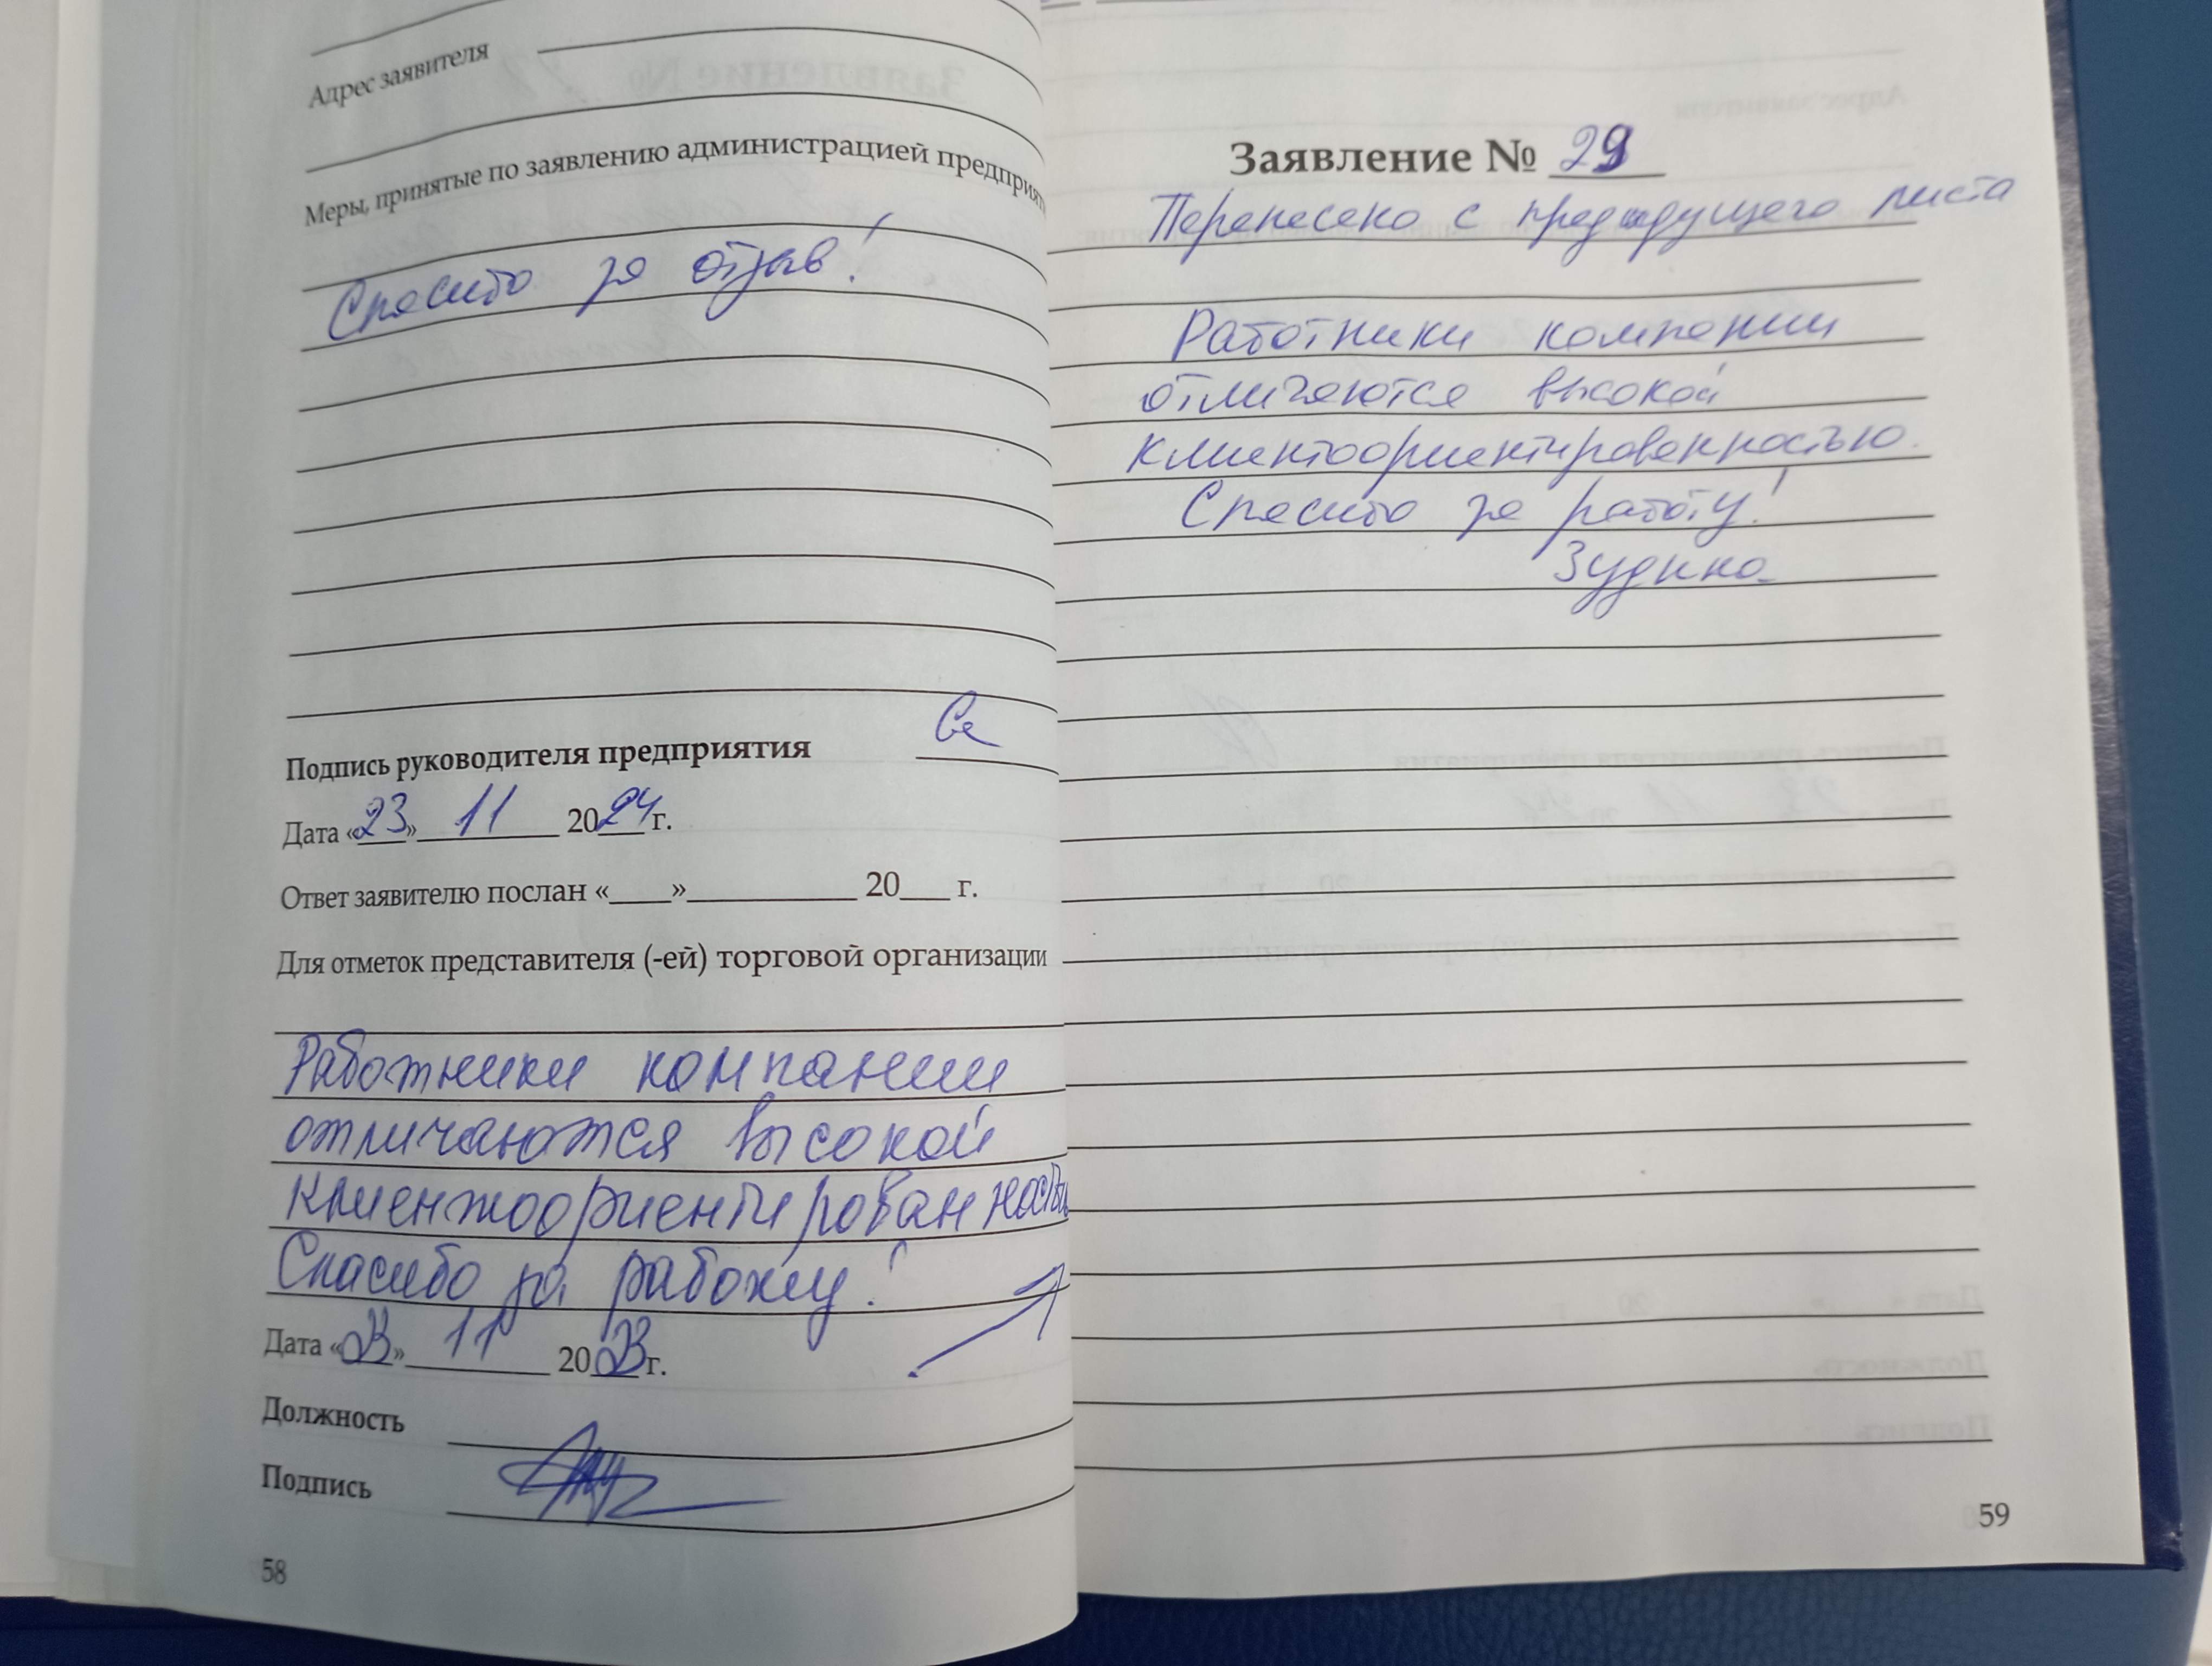 Адрес заявителя
Меры, принятые по заявлению администрацией предприят
Спасибо за отзыв!
Подпись руководителя предприятия
Дата «23» 11 2024 г.
Ответ заявителю послан «____»__________ 20___ г.
Для отметок представителя (-ей) торговой организации
Работники компании
отличаются высокой
клиентоориентированность
Спасибо за работу!
Дата «23» 11 2023 г.
Должность
Подпись
58
Заявление № 29
Перенесено с предыдущего листа
Работники компании
отличаются высокой
клиентоориентированностью.
Спасибо за работу!
Зудина
59